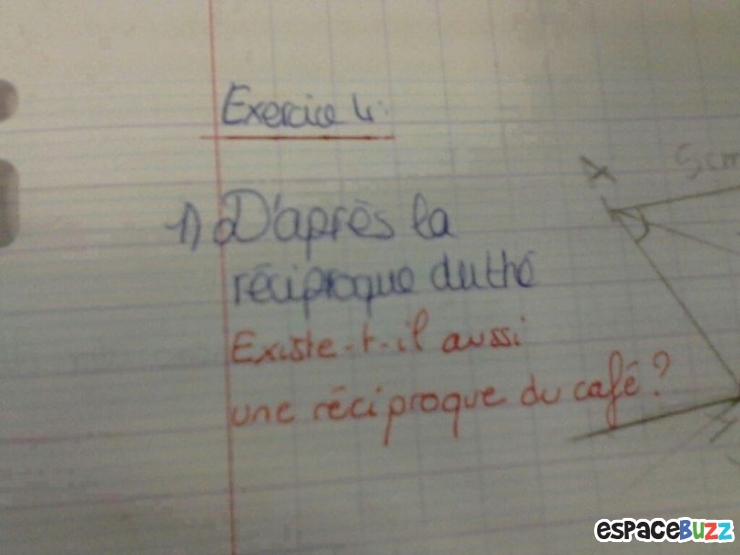 Exercice 4:
x
5cm
1) D'après la
réciproque du thé
Existe-t-il aussi
une réciproque du café?
ESPACEBUZZ